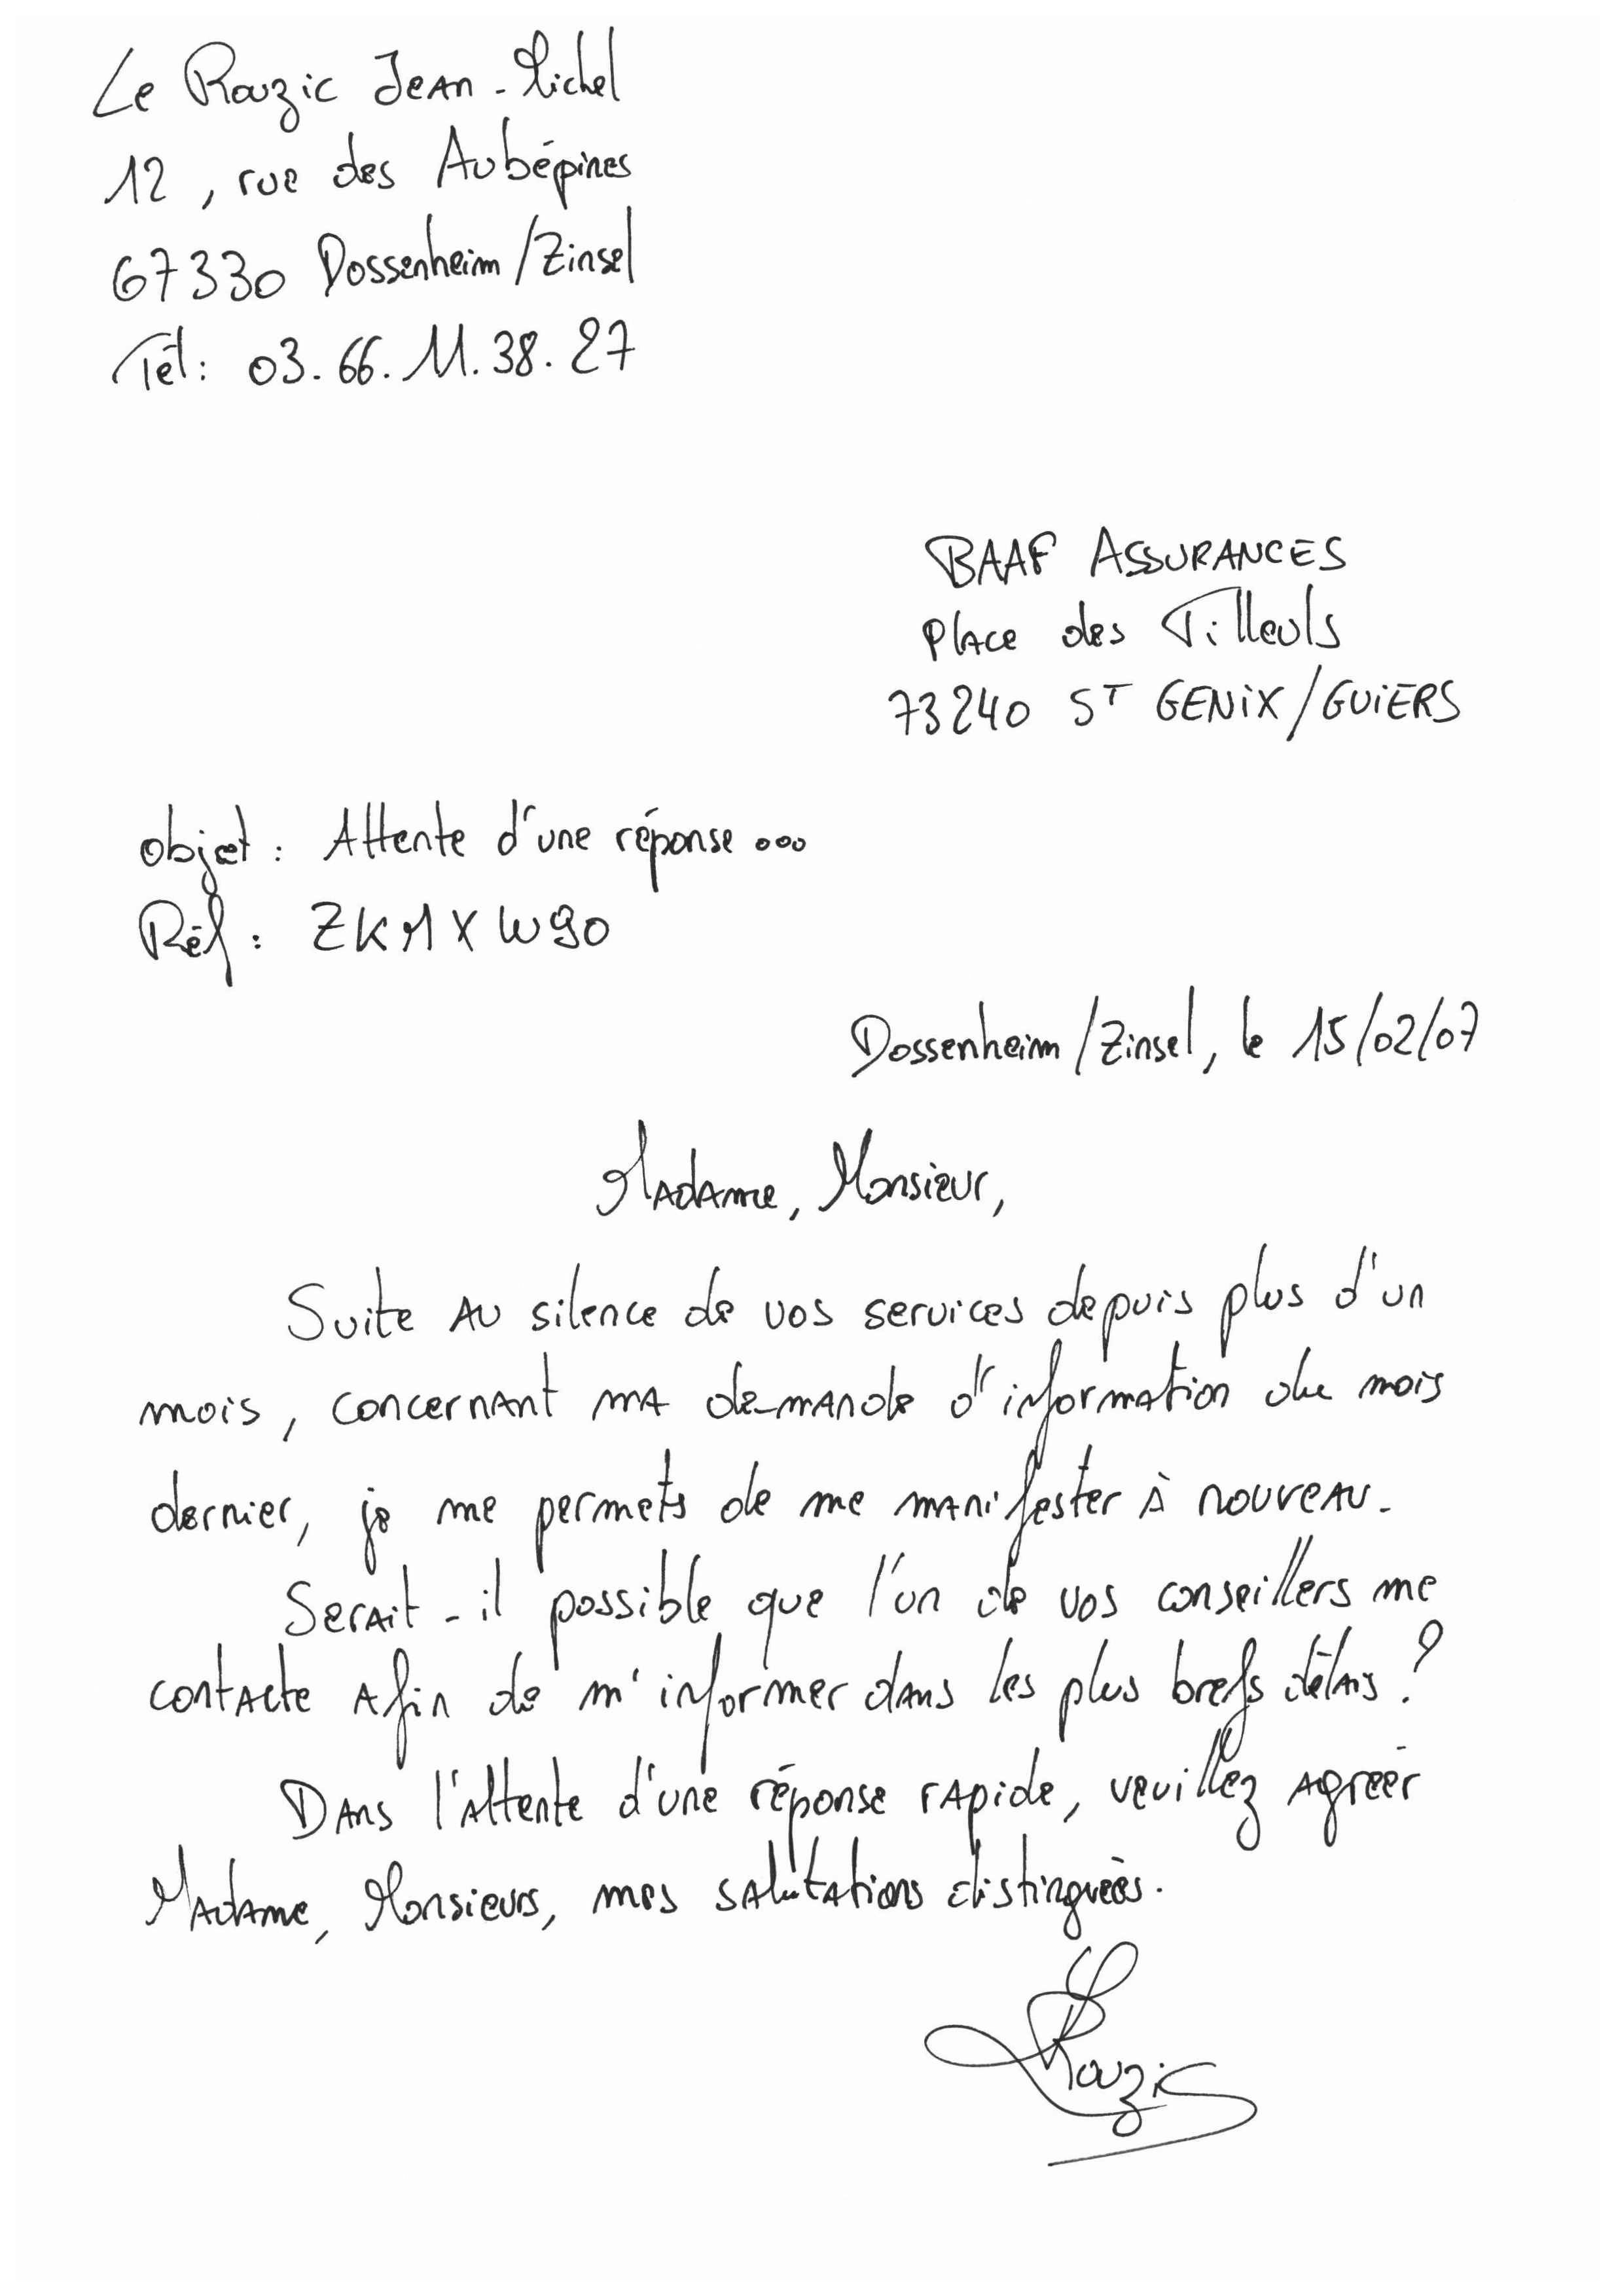 Le Rouzic Jean-Michel
12, rue des Aubépines
67330 Dossenheim/Zinsel
Tél: 03.66.11.38.27
BAAF ASSURANCES
Place des Tilleuls
73240 ST GENIX/GUIERS
objet : Attente d'une réponse...
Réf : ZKM1XW90
Dossenheim/Zinsel, le 15/02/07
Madame, Monsieur,
Suite au silence de vos services depuis plus d'un
mois, concernant ma demande d'information du mois
dernier, je me permets de me manifester à nouveau.
Serait-il possible que l'un de vos conseillers me
contacte afin de m'informer dans les plus brefs délais ?
Dans l'attente d'une réponse rapide, veuillez agréer
Madame, Monsieurs, mes salutations distinguées.
Rouzic